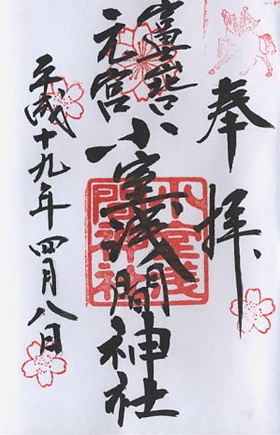 奉拝
富士山
元宮
小室浅間神社
平成十九年四月八日
小室浅間神社